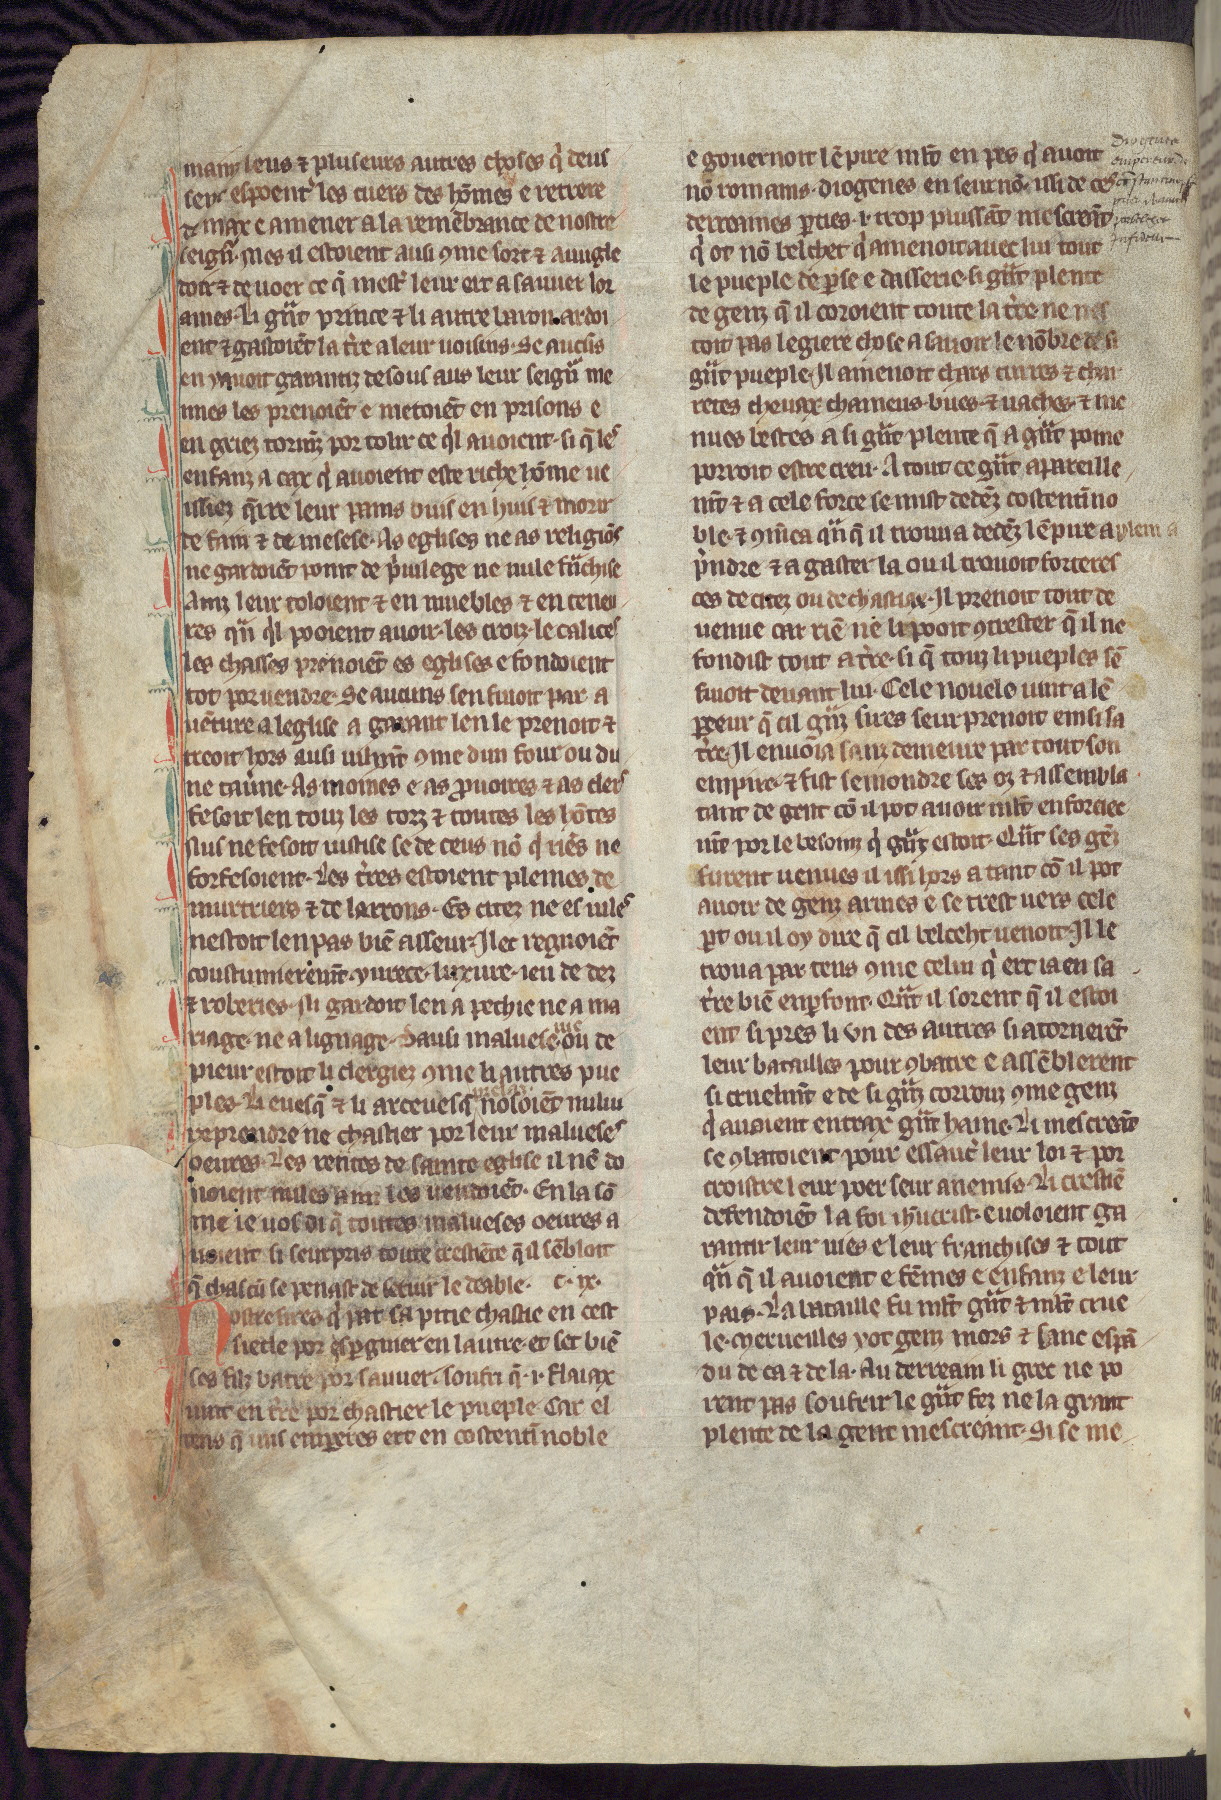 mainz leus ⁊ pluseurs autres choses q̇ deus
leur espoent̉ les cuers des hōmes e retrere
de max e amener a la remēbrance de nostre
seign̄r. Mes il estoient ausi ꝯme sort ⁊ auugle
doir ⁊ de uoer ce q̄ mestˀ leur ert a sauuer lor
ames. Li gn̄t prince ⁊ li autre baron ardoi
ent ⁊ gastoiēt la tˀre a leur uoisins. Se aucūs
en y auoit garantiz desouz aus leur seign̄r me
mes les prenoiēt e metoiēt en prisons e
en griez tormēz por tolir ce q̇l auoient. si q̄ les
enfanz a cax q̇ auoient este riche hōme ue
issiez q̄rre leur pains duis en huis ⁊ morir
de fain ⁊ de mesese. As eglises ne as religiōs
ne gardoiēt point de pˀuilege ne nule frāchise
Ainz leur toloient ⁊ en muebles ⁊ en teneu
res qn̄ q̇l pooient auoir. les croiz. le calices
les chasses prenoiēt es eglises e fondoient
tot por uendre. Se aucuns sen fuioit par a
uēture a leglise a garant len le prenoit ⁊
treoit hors ausi uilmēt ꝯme dun four ou du
ne tauˀne. As moines e as ꝓuoires ⁊ as clers
fesoit len touz les torz ⁊ toutes les hōtes
Nus ne fesoit iustise se de ceus nō q̇ riēs ne
forfesoient. Les tˀres estoient pleines de
murtriers ⁊ de larrons. Es citez ne es uiles
nestoit len pas biē asseur. Ilec regnoiēt
coustumieremēt. yurece. luxure. ieu de dez
⁊ roberies. Ni gardoit len a pechie ne a ma
riage. ne a lignage. Dausi maluese uie ou de
pieur estoit li clergiez ꝯme li autres pue
ples. Li euesq̄ ⁊ li arceuesq̄ nosoiēt nului
reprendre ne chastier por leur malueses
oeures. Les rentes de sainte eglise il nē do
noient nules ainz les uendoiēt. En la sō
me ie uos di q̄ toutes malueses oeures a
uoient si seurpris toute crestiēte q̄ il sēbloit
q̄ chascū se penast de seruir le deable. c. ix.
Nostre sires q̇ par sa pitie chastie en cest
siecle por espˀgnier en lautre. et set biē
ses filz batre por sauuer. soufri q̄ .i. flaiax
uint en tˀre por chastier le pueple. Car el
tens q̄ uns emperes ert en costentīnoble
e gouernoit lēpire ml̄t en pes q̇ auoit
nō romains. diogenes en seurnō. issi de ces
derrennes pˀties .i. trop puissāt mescreāt
q̇ ot nō belchet q̇ amenoit auec lui tout
le pueple de pˀse e dasserie. si gn̄t plente
de genz q̄ il coroient toute la tˀre. ne nes
toit pas legiere chose a sauoir le nōbre de si
gn̄t pueple. Il amenoit chars curres ⁊ char
retes cheuax chameus. bues. ⁊ uaches. ⁊ me
nues bestes a si gn̄t plente q̄ a gn̄t poine
porroit estre creu. A tout ce gn̄t apareille
mēt ⁊ a cele force se mist dedēz costentīno
ble. ⁊ ꝯmēca qn̄ q̄ il trouua dedēz lēpire a plain a
pˀndre ⁊ a gaster la ou il trouoit forteres
ces de citez ou de chastiax. Il prenoit tout de
uenue car riē ne li pooit ꝯtrester q̄ il ne
fondist tout a tˀre. si q̄ touz li pueples sē
fuioit deuant lui. Cele nouele uint a lē
pereur q̄ cil gn̄z sires seurprenoit einsi sa
tˀre. Il enuoia sanz demeure par tout son
empire. ⁊ fist semondre ses oz ⁊ assembla
tant de gent cō il pot auoir ml̄t enforciee
mēt por le besoing q̇ gn̄z estoit. Qn̄t ses gēz
furent uenues il issi hors a tant cō il pot
auoir de genz armes e se trest uers cele
pˀt ou il oy dire q̄ cil belceht uenoit. Il le
troua par tens ꝯme celui q̇ ert ia en sa
tˀre biē enpˀfont. Qn̄t il sorent q̄ il estoi
ent si pres li vn des autres si atornerēt
leur batailles pour ꝯbatre e assēblerent
si cruelmēt e de si gn̄z corrouz ꝯme genz
q̇ auoient entrax gn̄t haine. Li mescreāt
se ꝯbatoient pour essaucˀ leur loi ⁊ por
croistre leur poer seur anemis. Li crestiē
defendoiēt la foi ih̄ucrist. e uoloient ga
rantir leur uies e leur franchises ⁊ tout
qn̄ q̄ il auoient e fēmes e enfanz e leur
pais. La bataille fu ml̄t gn̄t ⁊ ml̄t crue
le. Merueilles yot genz mors ⁊ sanc espā
du de ca ⁊ de la. Au derreain li grec ne po
rent pas soufrir le gn̄t fez ne la grant
plente de la gent mescreint. Si se me